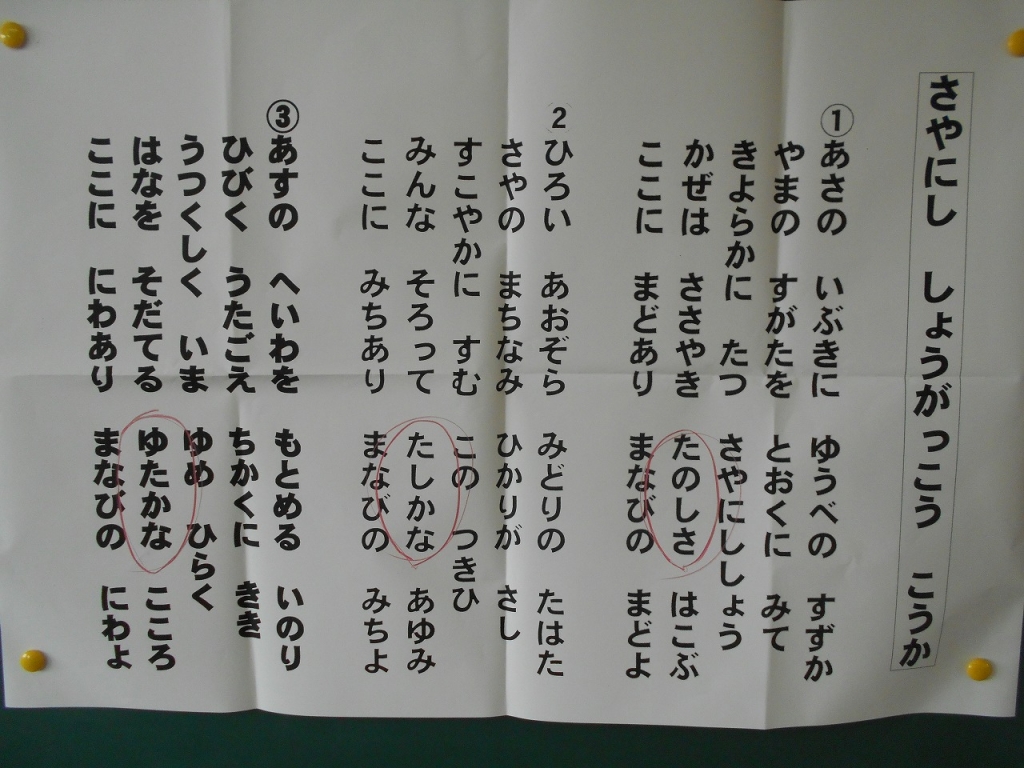 さやにし しょうがっこう こうか
①あさの いぶきに ゆうべの すずか
やまの すがたを とおくに みて
きよらかに たつ さやにししょう
かぜは ささやき たのしさ はこぶ
ここに まどあり まなびの まどよ
2ひろい あおぞら みどりの たはた
さやの まちなみ ひかりが さし
すこやかに すむ この つきひ
みんな そろって たしかな あゆみ
ここに みちあり まなびの みちよ
③あすの へいわを もとめる いのり
ひびく うたごえ ちかくに きき
うつくしく いま ゆめ ひらく
はなを そだてる ゆたかな こころ
ここに にわあり まなびの にわよ